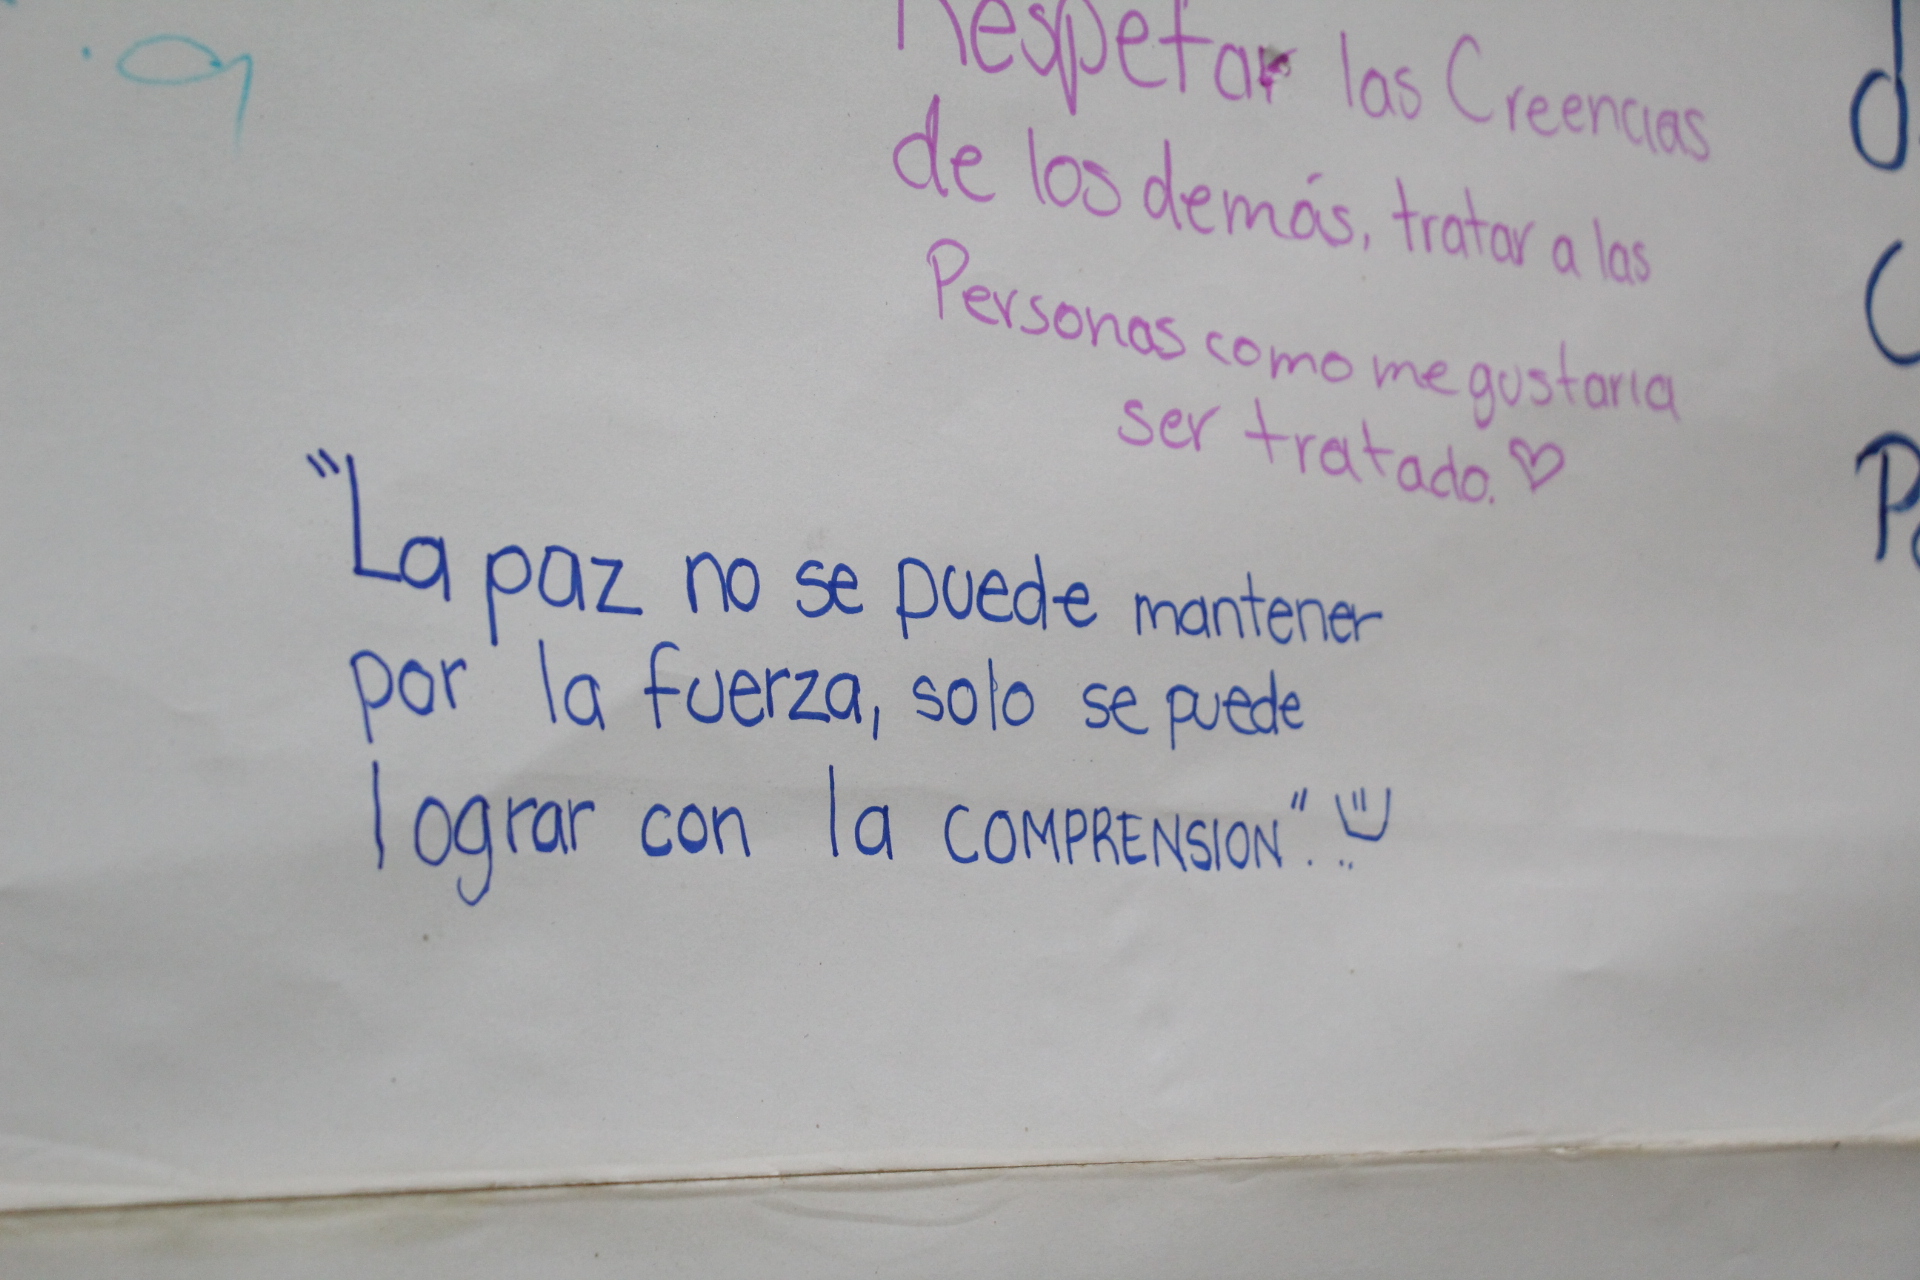 Respetar las Creencias
de los demás, tratar a las
Personas como me gustaria
ser tratado. ♡
"La paz no se puede mantener
por la fuerza, solo se puede
lograr con la COMPRENSION".